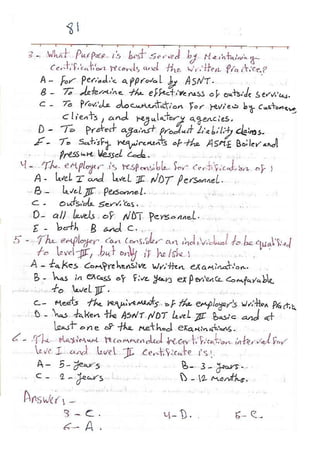 81
3 - What Purpose is best served by Maintaining
Certification records and the written Practice?
A - for Periodic approval by ASNT.
B - To determine the effectiveness of outside services.
C - To Provide documentation for review by Customers,
Clients, and regulatory agencies.
D - To Protect against product liability claims.
E - To Satisfy requirements of the ASME Boiler and
Pressure Vessel Code.
4 - The employer is responsible for certification of:
A - level I and level II NDT Personnel.
B - level III Personnel.
C - outside Services.
D - all levels of NDT Personnel.
E - both B and C.
5 - The employer can consider an individual to be qualified
to level III, but only if he/she:
A - takes Comprehensive written examination.
B - has in excess of five years experience Comparable
to level III.
C - Meets the requirements of the employer's written Practice
D - has taken the ASNT NDT level III Basic and at
least one of the method examinations.
6 - The Maximum recommended recertification interval for
level I and level II Certificate is:
A - 5-Years
B - 3-Years.
C - 2-Years
D - 12 Months.
Answer:-
3 - C.
4 - D.
5 - C.
6 - A.